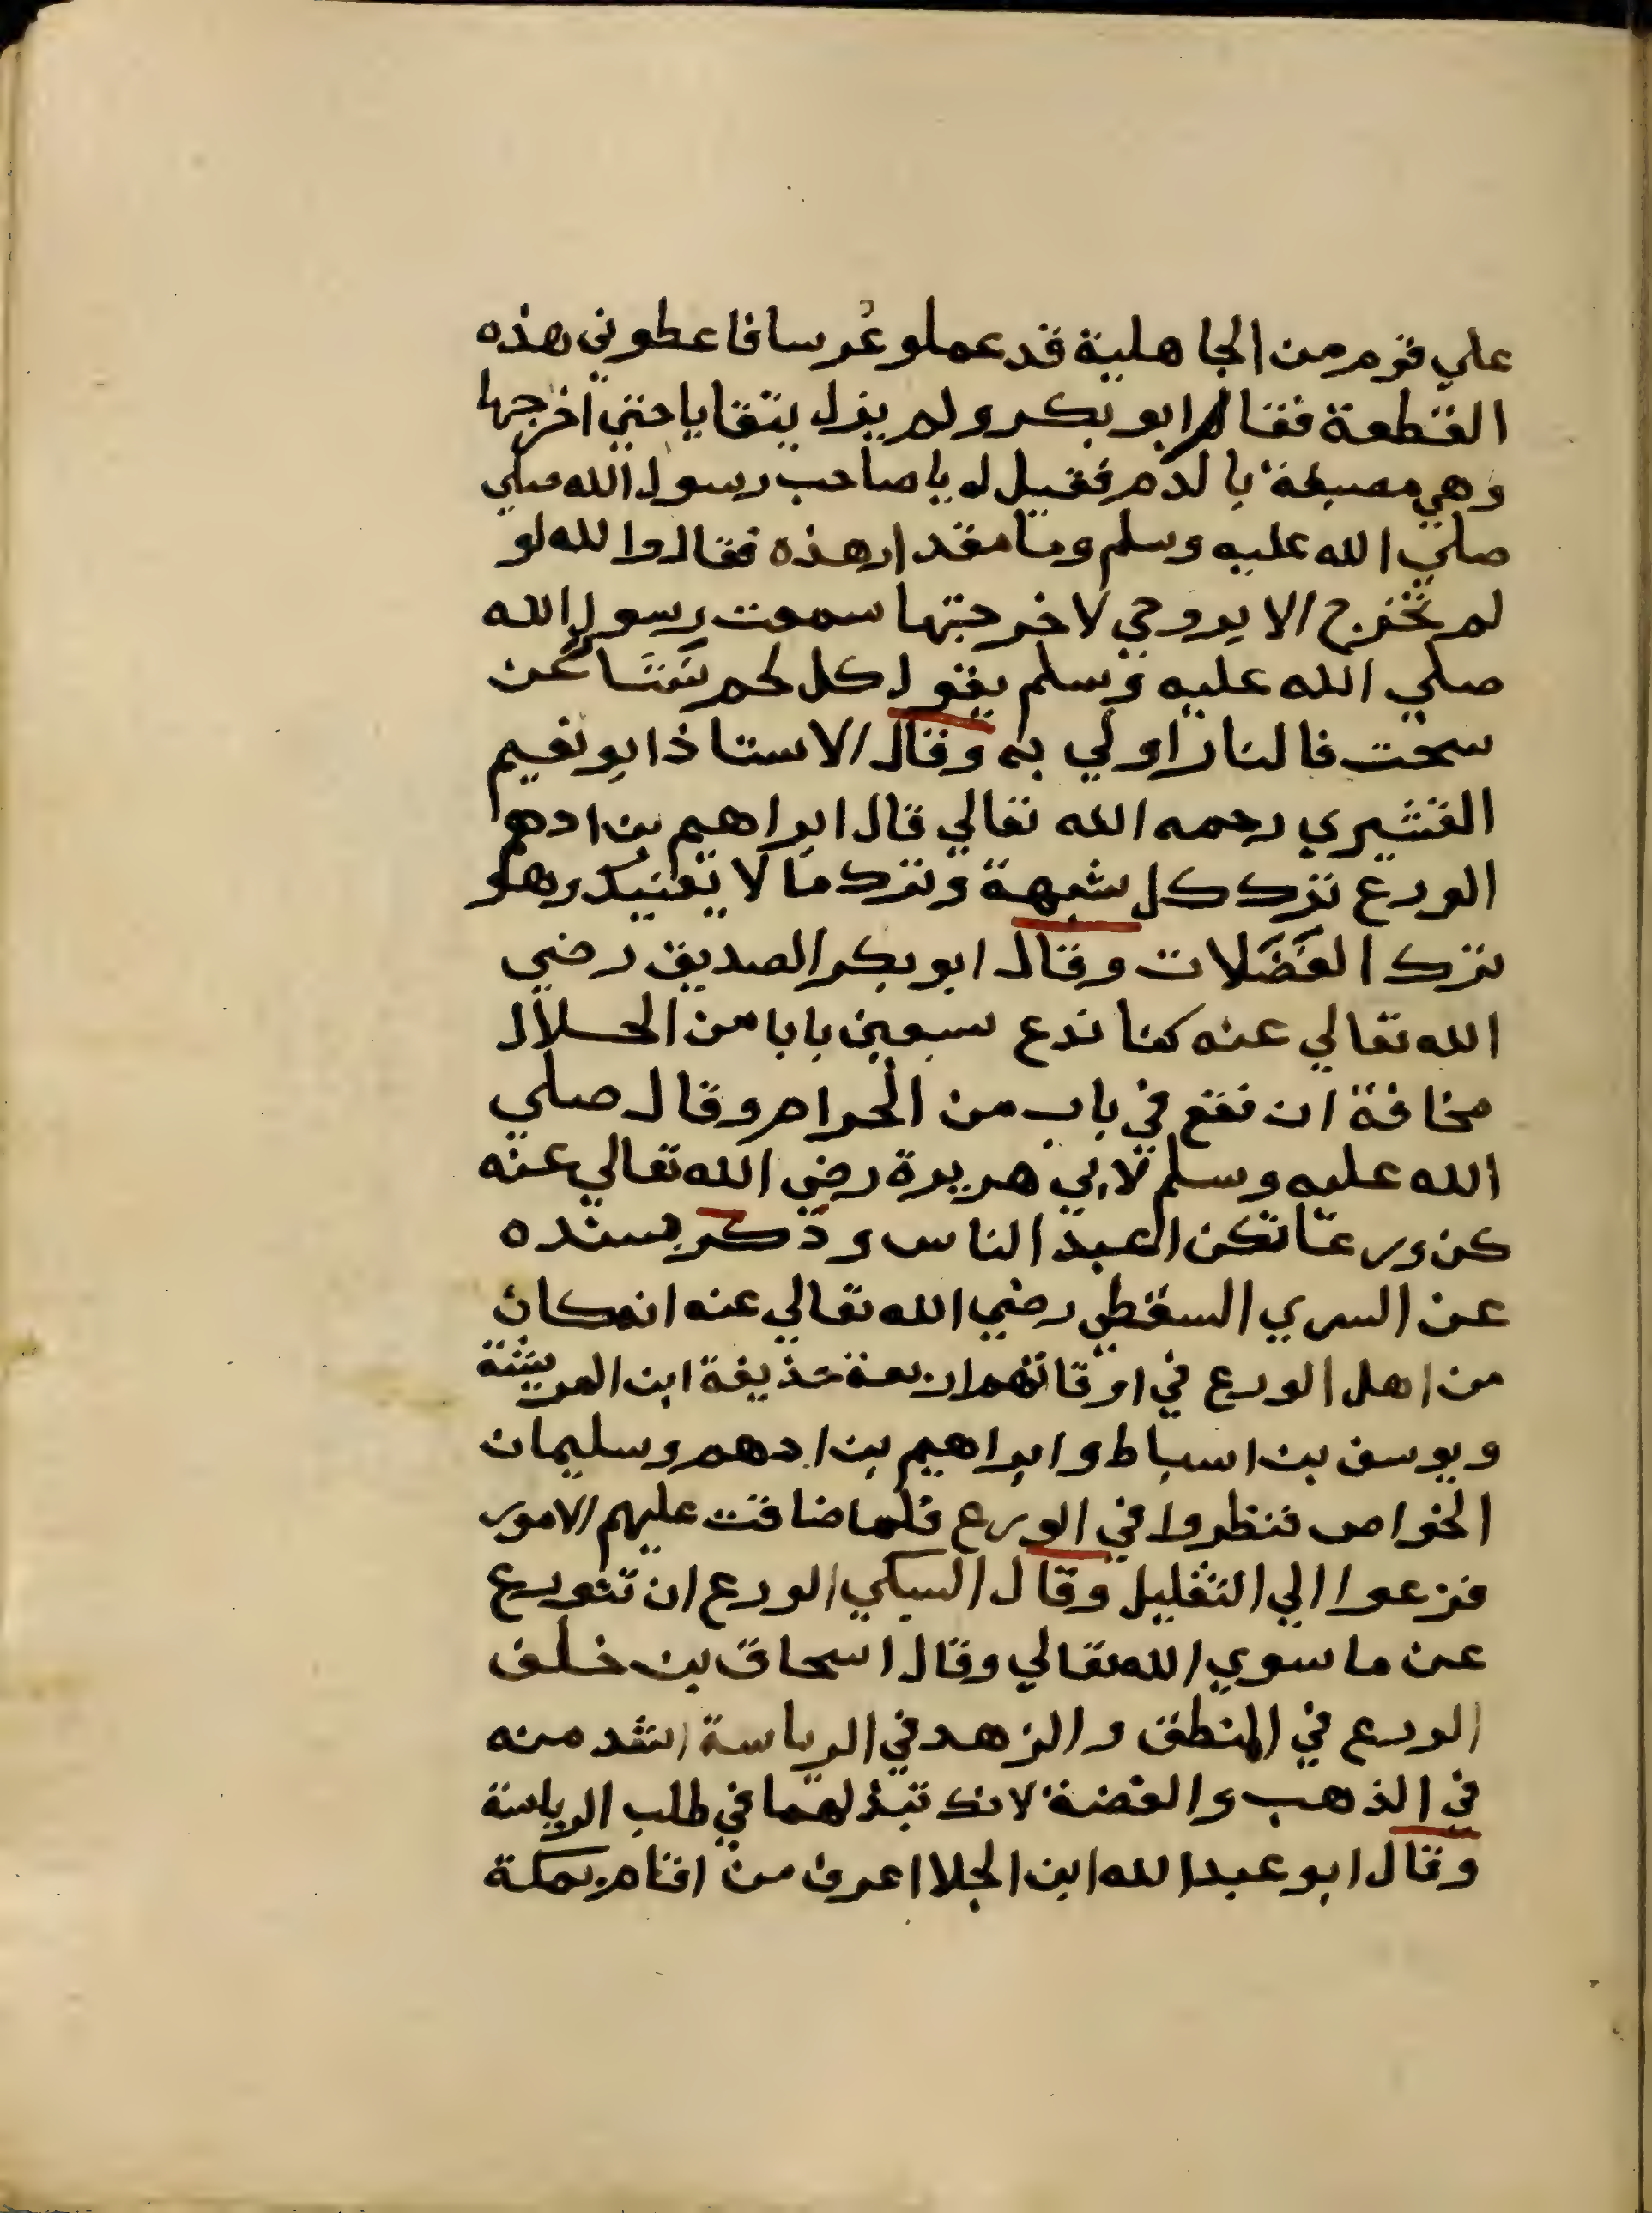 علي قوم من الجاهلية قد عملو عُرسا فاعطوني هذه
القطعة فقام ابو بكر ولم يزل يتقايا حتي اخرجها
وهي مصبغة بالدم فقيل له يا صاحب رسول الله صلي
صلي الله عليه وسلم وما مقدار هذه فقال والله لو
لم تخرج الا بروحي لاخرجتها سمعت رسول الله
صلي الله عليه وسلم يقول كل لحم نَتَتَا عن
سحت فالنار اولي به وقال الاستاذ ابو نعيم
القشيري رحمه الله تعالي قال ابراهيم بن ادهم
الورع ترك كل شبهة وترك ما لا يعنيك وهو
ترك الفَضَلات وقال ابو بكر الصديق رضي
الله تعالي عنه كنا ندع سبعين بابا من الحلال
مخافة ان نقع في باب من الحرام وقال صلي
الله عليه وسلم لابي هريرة رضي الله تعالي عنه
كن ورعا تكن اعبد الناس وذكر بسنده
عن السري السقطي رضي الله تعالي عنه انه كان
من اهل الورع في اوقاتهم اربعة حذيفة ابن المريثية
ويوسف بن اسباط وابراهيم بن ادهم وسليمان
الخواص فنظروا في الورع فلما ضاقت عليهم الامور
فزعوا الي التقليل وقال السبكي الورع ان تتورع
عن ما سوي الله تعالي وقال اسحاق بن خلف
الورع في المنطق والزهد في الرياسة اشد منه
في الذهب والفضة لانك تبذلهما في طلب الرياسة
وقال ابو عبد الله ابن الجلا اعرف من اقام بمكة